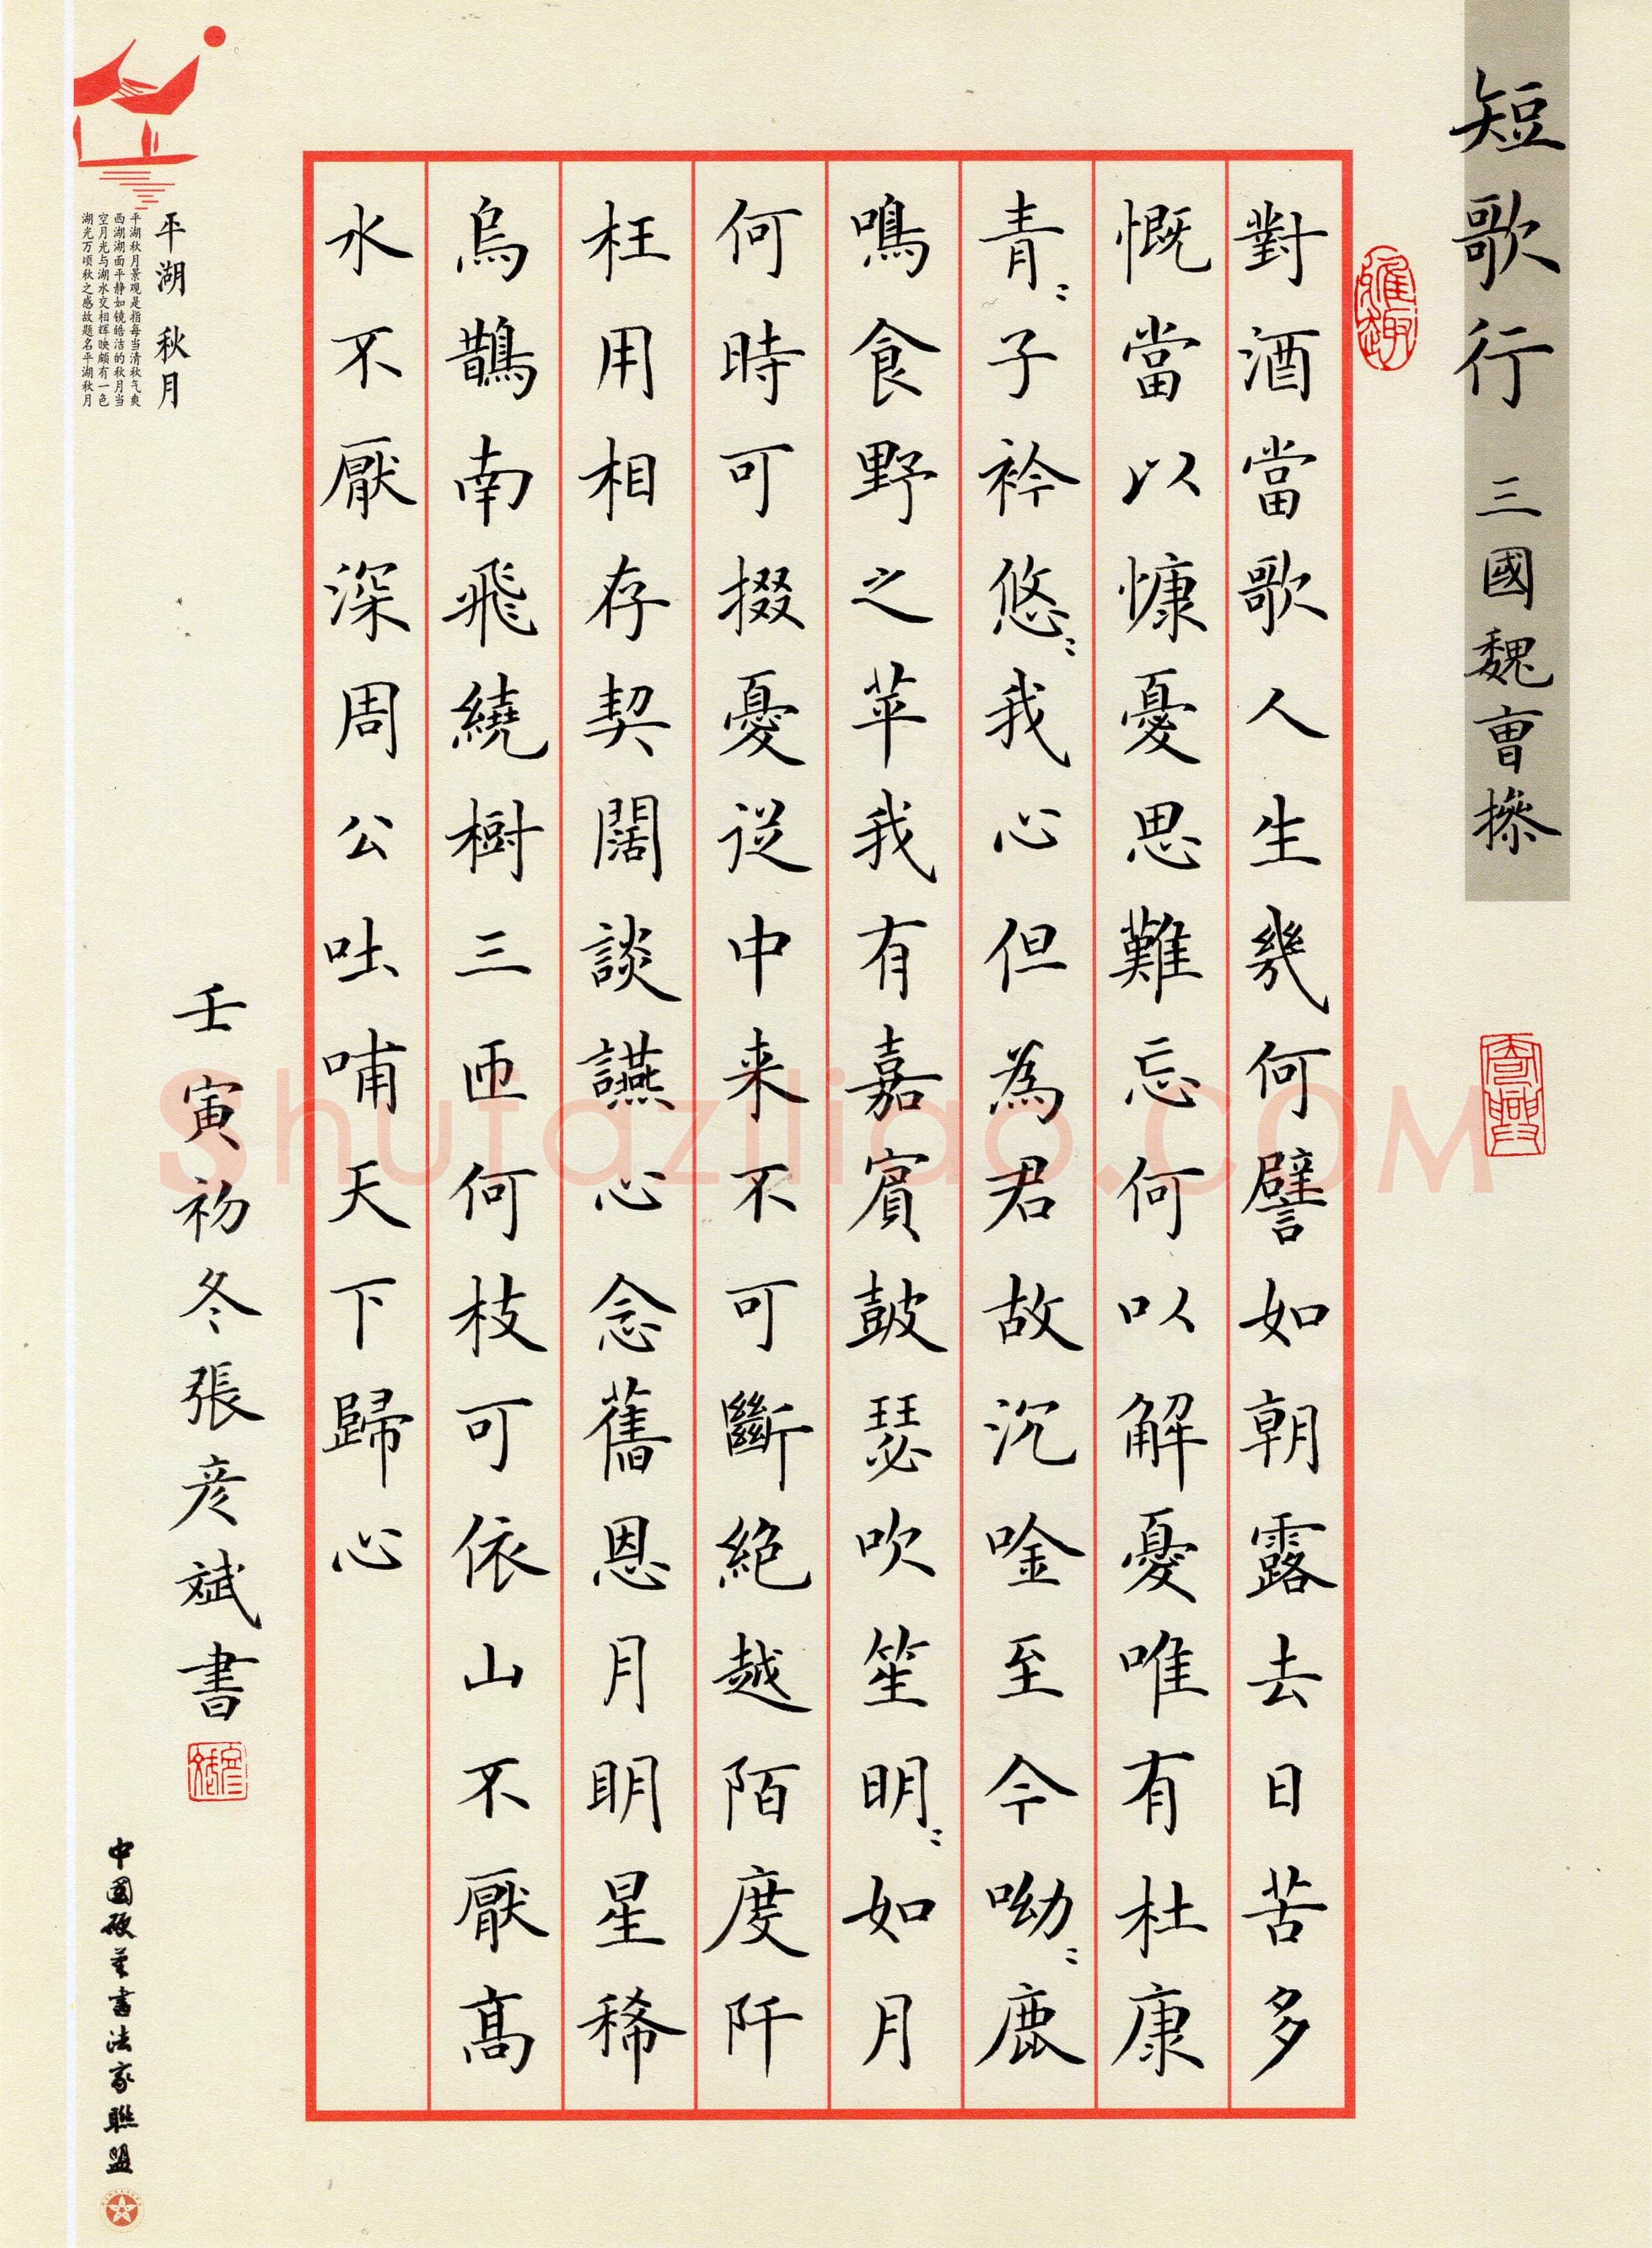 短歌行 三國魏曺撡
對酒當歌人生幾何譬如朝露去日苦多
慨當以慷憂思難忘何以解憂唯有杜康
青〻子衿悠〻我心但為君故沉唫至今呦〻鹿
鳴食野之苹我有嘉賓鼓瑟吹笙明〻如月
何時可掇憂從中来不可斷絕越陌度阡
枉用相存契闊談讌心念舊恩月明星稀
烏鵲南飛繞樹三匝何枝可依山不厭高
水不厭深周公吐哺天下歸心
壬寅初冬張彥斌書
平湖秋月
平湖秋月景观是指每当清秋气爽
西湖湖面平静如镜皓洁的秋月当
空月光与湖水交相辉映颇有一色
湖光万顷秋之感故题名平湖秋月
中國硬筆書法家聯盟
Shufaziliao.COM